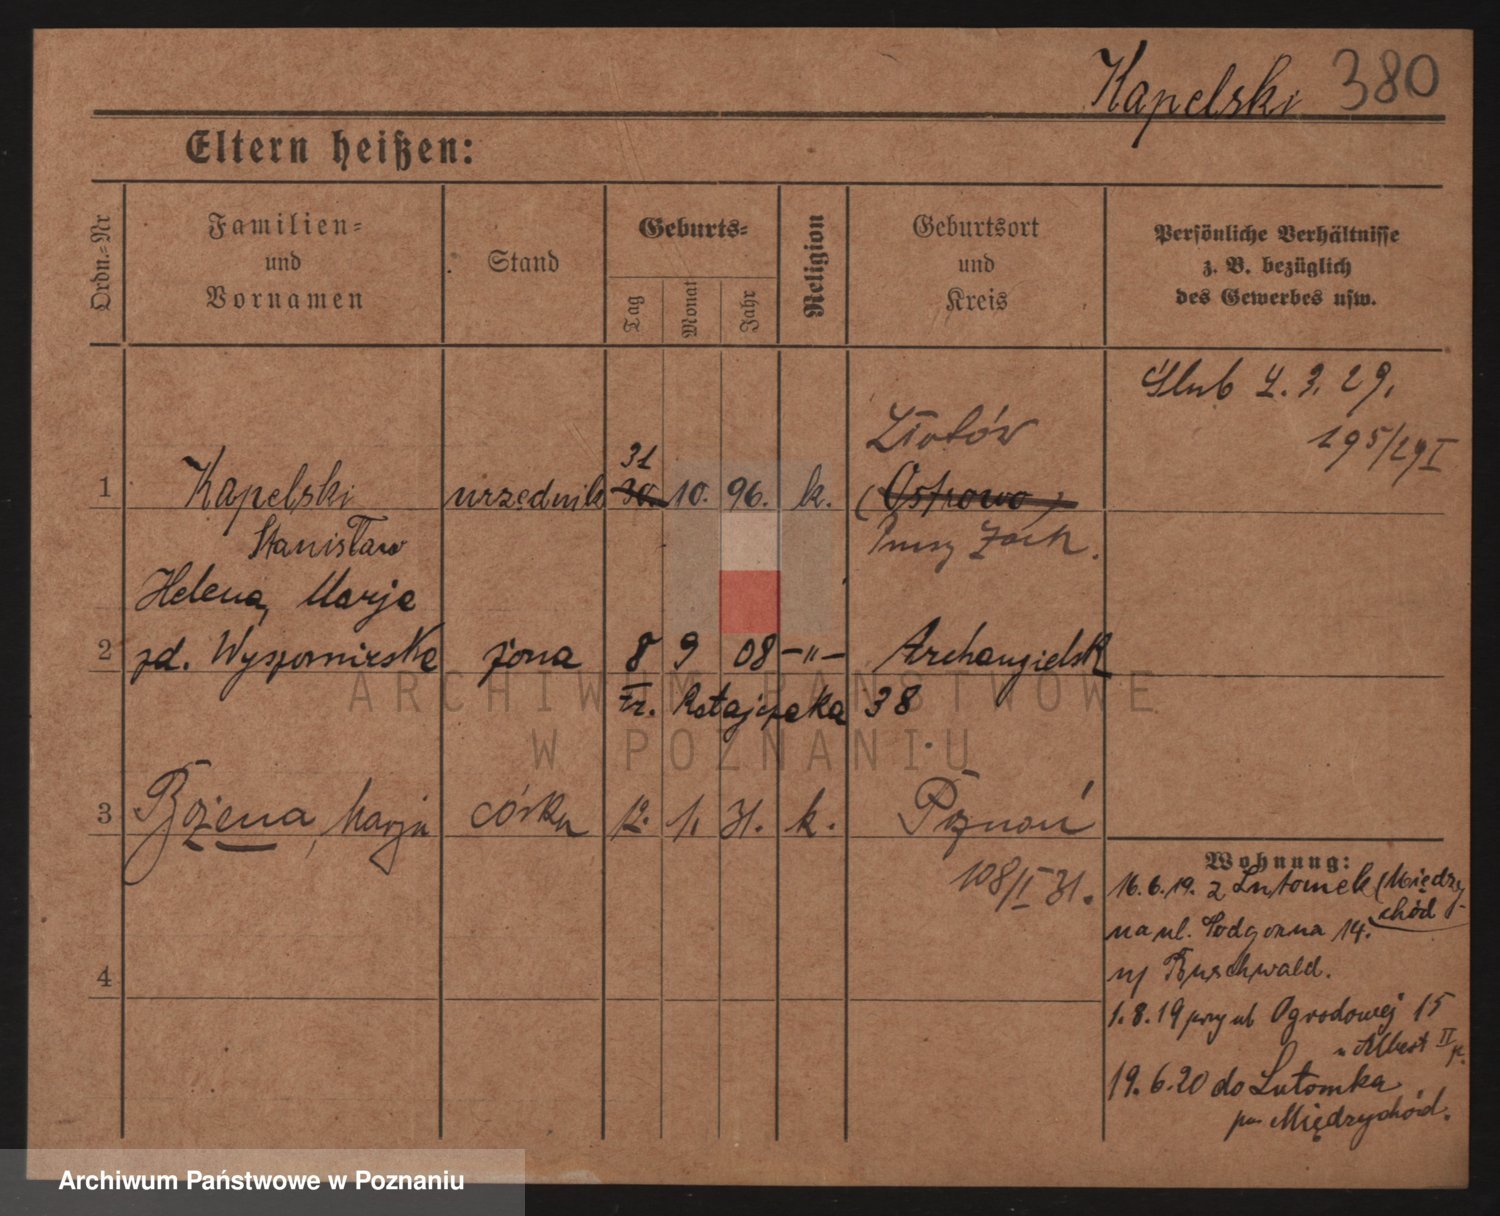 Kapelski 380
Eltern heißen:
Ordn.=Nr
Familien=
und
Vornamen
Stand
Geburts=
Tag
Monat
Jahr
Religion
Geburtsort
und
Kreis
Persönliche Verhältnisse
z. B. bezüglich
des Gewerbes usw.
Ślub 2. 3. 29.
195/29 I
Złotów
31
1 Kapelski urzędnik 30. 10. 96. k. (Ostrowo)
Stanisław Prusy Zach.
Helena, Marja
2 zd. żona 8 9 08 —"— Archangielsk
Fr. Ratajczaka 38
3 Bożena, Marja córka 12. 1. 31. k. Poznań
108/I 31.
4
Wohnung:
16.6.19. z Lutomek (Między
chód
na ul. Podgorna 14.
u/ Buschwald.
1.8.19 przy ul Ogrodowej 15
u Albest II p.
19.6.20 do Lutomka
pow Międzychód.
ARCHIWUM PAŃSTWOWE
W POZNANIU
Archiwum Państwowe w Poznaniu